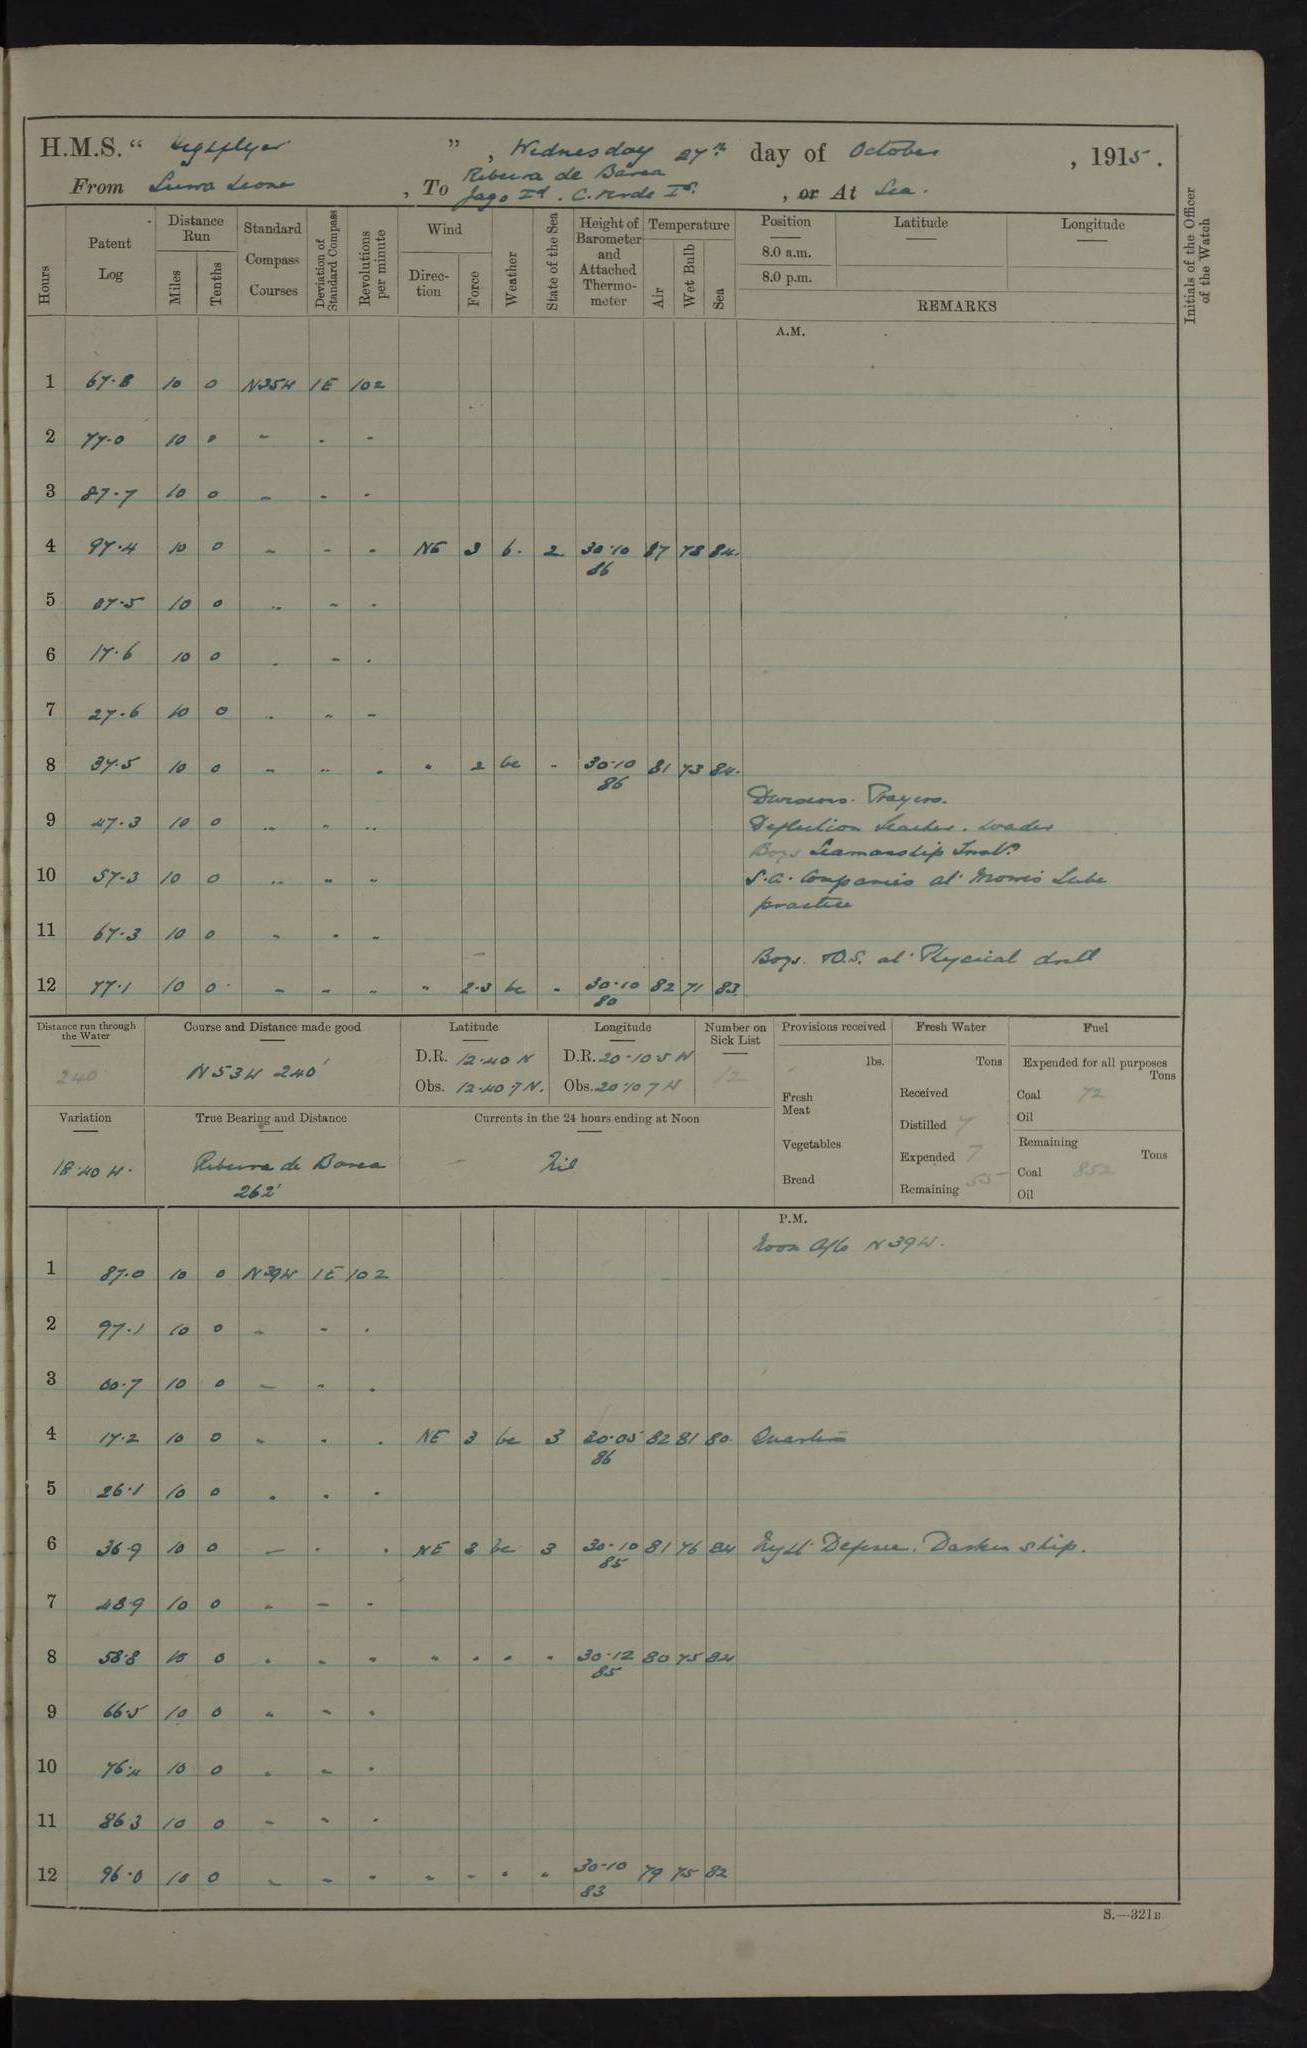 H.M.S. " Highflyer " , Wednesday 27th day of October , 1915.
From Sierra Leone , To Ribeira de Barca
Jago Id. C. Verde Is. , or At Sea.
Hours
Patent Log
Distance Run
Miles
Tenths
Standard Compass Courses
Deviation of Standard Compass
Revolutions per minute
Wind
Direction
Force
Weather
State of the Sea
Height of Barometer and Attached Thermometer
Temperature
Air
Wet Bulb
Sea
Position
Latitude
Longitude
8.0 a.m.
8.0 p.m.
REMARKS
Initials of the Officer of the Watch
A.M.
1 67.8 10 0 N35W 1E 102
2 77.0 10 0 " " "
3 87.7 10 0 " " "
4 97.4 10 0 " " " NE 3 b. 2 30.10 87 78 84.
86
5 07.5 10 0 " " "
6 17.6 10 0 " " "
7 27.6 10 0 " " "
8 37.5 10 0 " " " " 2 bc " 30.10 81 73 84.
86
Divisions. Prayers.
9 47.3 10 0 " " " Deflection Teacher. Loader
Boys Seamanship Instn.
10 57.3 10 0 " " " S.A. Companies at Morris Tube
practice
11 67.3 10 0 " " "
Boys. O.S. at Physical drill
12 77.1 10 0 " " " " 2-3 bc " 30.10 82 71 83
80
Distance run through the Water
240
Course and Distance made good
N53W 240'
Latitude
D.R. 12.40 N
Obs. 12.40.7 N.
Longitude
D.R. 20-10.5 W
Obs. 20.10.7 W
Number on Sick List
12
Provisions received
lbs.
Fresh Meat
Vegetables
Bread
Fresh Water
Tons
Received
Distilled 7
Expended 7
Remaining 55
Fuel
Expended for all purposes
Tons
Coal 72
Oil
Remaining
Tons
Coal 852
Oil
Variation
18.40 W.
True Bearing and Distance
Ribeira de Barca
262'
Currents in the 24 hours ending at Noon
Nil
P.M.
Noon A/c N39W.
1 87.0 10 0 N39W 1E 102
2 97.1 10 0 " " "
3 00.7 10 0 " " "
4 17.2 10 0 " " " NE 3 bc 3 30.05 82 81 80. Quarters
86
5 26.1 10 0 " " "
6 36.9 10 0 " " " NE 3 bc 3 30.10 81 76 84 Night Defence. Darken ship.
85
7 48.9 10 0 " " "
8 58.8 10 0 " " " " " " " 30.12 80 75 84
85
9 66.5 10 0 " " "
10 76.4 10 0 " " "
11 86.3 10 0 " " "
12 96.0 10 0 " " " " " " " 30.10 79 75 82
83
S.—321B